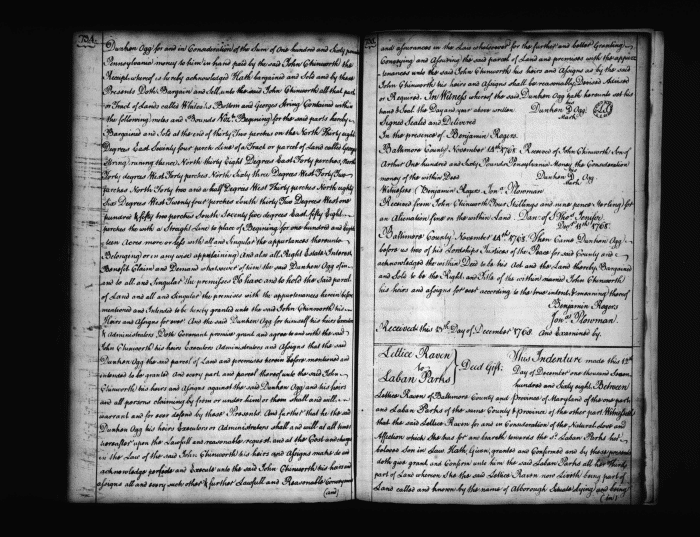 734
Dunhan Agg for and in Consideration of the Sum of One hundred and Sixty pounds
Pennsylvania money to him in hand paid by the said John Chinworth the
Receipt whereof is hereby acknowledged Hath bargained and Sold and by these
Presents Doth Bargain and Sell unto the said John Chinworth all that part
or Tract of Land called Bottom and Georges String Contained within
the following and Bounds Vizt. Beginning for the said part hereby
Bargained and Sold at the end of thirty Two perches on the North Thirty eight
Degrees East Seventy four perch Line of a Tract or parcel of Land called Georges
String running thence North thirty Eight Degrees East Forty perches North
Forty degrees West Forty perches North Sixty Three Degrees West Forty Two
perches North Forty two and a half Degrees West Thirty perches North eighty
Six Degrees West Twenty four perches South thirty Two Degrees West one
hundred & fifty two perches South Seventy five degrees East fifty Eight
perches the with a Straight Line to place of Beginning for One hundred and Eight
teen Acres more or less with all and Singular the appurtances thereunto
Belonging or in any wise appertaining And also all Right Estate Interest
Benefit Claim and Demand whatsoever of him the said Dunhan Agg of in
and to all and Singular the premisses To have and to hold the said parcel
of Land and all and Singular the premises with the appurtenances herein before
mentioned and Intended to be hereby granted unto the said John Chinworth his
Heirs and Assigns for ever And the said Dunhan Agg for himself his heirs Executors
& Administrators Doth Covenant promise grant and agree to and with the said
John Chinworth his heirs Executors Administrators and Assigns that the said
Dunhan Agg the said parcel of Land and premises herein before mentioned and
intended to be granted And every part and parcel thereof unto the said John
Chinworth his heirs and Assigns against the said Dunhan Agg and his heirs
and all persons claiming by from or under him or them shall and will
warrant and for ever defend by these Presents And further that he the said
Dunhan Agg his heirs Executors or Administrators shall and will at all times
hereafter upon the Lawfull and reasonable request and at the Cost and charge
in the Law of the said John Chinworth his heirs and Assigns make do and
acknowledge perform and Execute unto the said John Chinworth his heirs and
assigns all and every such other & further Lawfull and Reasonable Conveyance
(and)
735
and assurances in the Law whatsoever for the further and better Granting
Conveying and Assuring the said parcel of Land and Premises with the appur
tenances unto the said John Chinworth his heirs and Assigns as by the said
John Chinworth his heirs and Assigns shall be reasonably Devised Advised
or Required. In Witness whereof the said Dunhan Agg hath hereunto set his
hand & Seal the Day and year above written Dunhan D Agg
Signed Sealed and Delivered mark
In the presence of Benjamin Rogers
Baltimore County November 14th 1768 Received of John Chinworth Son of
Arthur One hundred and Sixty Pounds Pennsylvania Money the Consideration
money of the within Deed Dunhan D Agg
Witnesses (Benjamin Rogers Jona. Plowman mark
Received from John Chinworth Four Shillings and nine pence Sterling for
an Alienation fine on the within Land Dan of Thos. Jenifer
Decr. 11th 1768
Baltimore County November 14th 1768 Then Came Dunhan Agg
before us two of his Lordships Justices of the Peace for said County and
acknowledged the within Deed to be his Act and the Land thereby Bargained
and Sold to be the Right and Title of the within named John Chinworth
his heirs and assigns for ever according to the true intent & meaning thereof
Benjamin Rogers
Jonas Plowman
Received this 12th Day of December 1768 And Examined by
Lettice Raven
to
Laban Parks
Deed Gift
This Indenture made this 12th
Day of December one thousand Seven
hundred and Sixty eight Between
Lettice Raven of Baltimore County and Province of Maryland of the one part
and Laban Parks of the same County & province of the other part Witnesseth
that the said Lettice Raven for and in Consideration of the Natural Love and
Affection which She has for and beareth towards the Sd. Laban Parks her
beloved Son in Law Hath Given granted and Confirmed and by these presents
doth give grant and Confirm unto him the said Laban Parks all her Thirds
part of Land whereon She the said Lettice Raven now Liveth being part of
Land called and known by the name of Alborough Situate lying and being
(in)